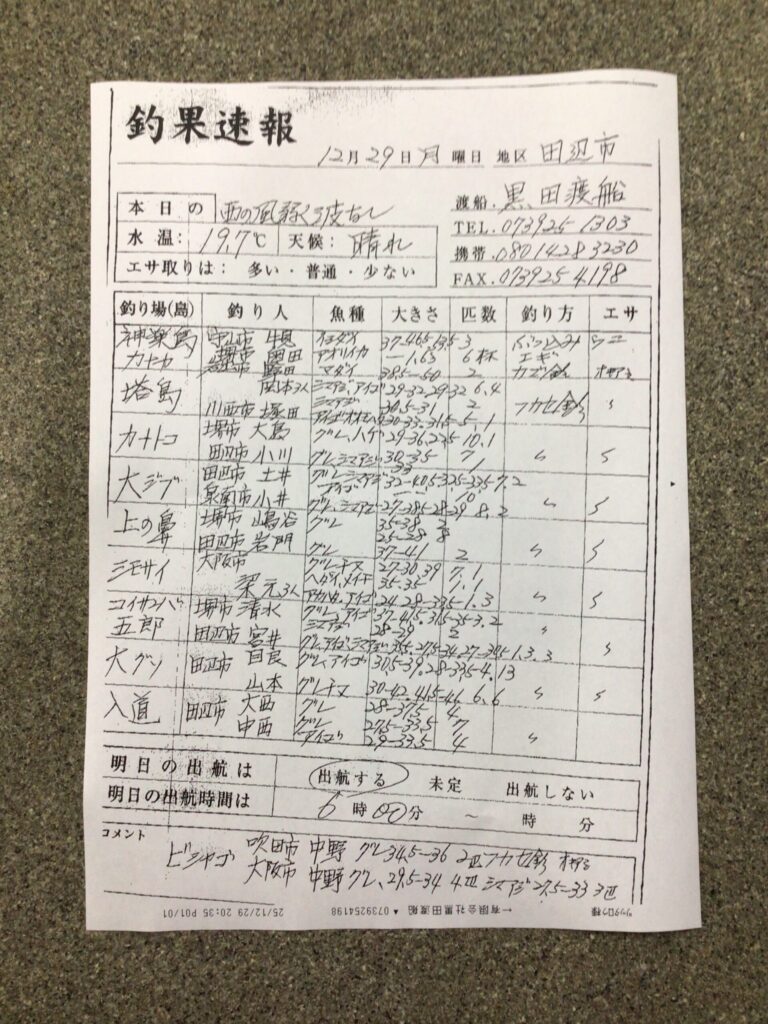 釣果速報
12月29日月曜日 地区 田辺市
渡船.黒田渡船
本日の 西の風弱く波なし
TEL.073925 1303
水温: 19.7℃ 天候: 晴れ
携帯.0801428 3230
エサ取りは: 多い・普通・少ない
FAX.073925 4198
釣り場(島) 釣り人 魚種 大きさ 匹数 釣り方 エサ
神楽島 守山市 イシダイ 37-46.5 3 ウニ
カナトコ アオリイカ 1.63 6杯 エギ
マダイ 38.5-50 2 カゴ釣 オキアミ
塔島 関本さん シマアジ、アイゴ 29-32 29-32 6.4
川西市 塚田 シマアジ 30.5-31 2 フカセ釣 〃
カナトコ 堺市 大島 グレ、ハゲ 29-36 23.5 10.1
田辺市 小川 グレ、シマアジ 30.35 7 〃 〃
33 1
大ジブ 田辺市 土井 グレ、シマアジ 32-40.5 32.5-33.5 7.2
泉南市 小井 アイゴ 10 〃 〃
グレ、シマアジ 27-38.5-28-29 8.2
上の鼻 堺市 嶋谷 グレ 35-38 2
25-28 8
田辺市 岩門 グレ 37-41 2 〃 〃
シモサイ 大阪市 グレ、チヌ 27-30.39 7.1
梁元さん ヘダイ、メイチ 35-35 1.1 〃 〃
24.28-33.5 1.3
コイサンバ 堺市 清水 グレ、アイゴ 37-41.5 31.5-35 3.2
シマアジ 28-29 2 〃
五郎 田辺市 宮井 グレ、アイゴ、シマアジ 35.5-27.5-34 27-34.5 1.3.3 〃
大グソ 田辺市 自良 グレ、アイゴ 30.5-39.28-33.5 4.13
山本 グレ、チヌ 30-42.41.5-46 6.6 〃 〃
入道 田辺市 大西 グレ 28-37.5 4
中西 グレ 27.5-33.5 7
アイゴ 29-33.5 4 〃
明日の出航は 出航する 未定 出航しない
明日の出航時間は 6時00分 ~ 時 分
コメント
ビシャゴ 吹田市 中野 グレ34.5-36 2匹フカセ釣 オキアミ
大阪市 中野 グレ、29.5-34 4匹 シマアジ27.5-33 3匹
25/12/29 20:35 P01/01 ▲ 0739254198 ←有限会社黒田渡船